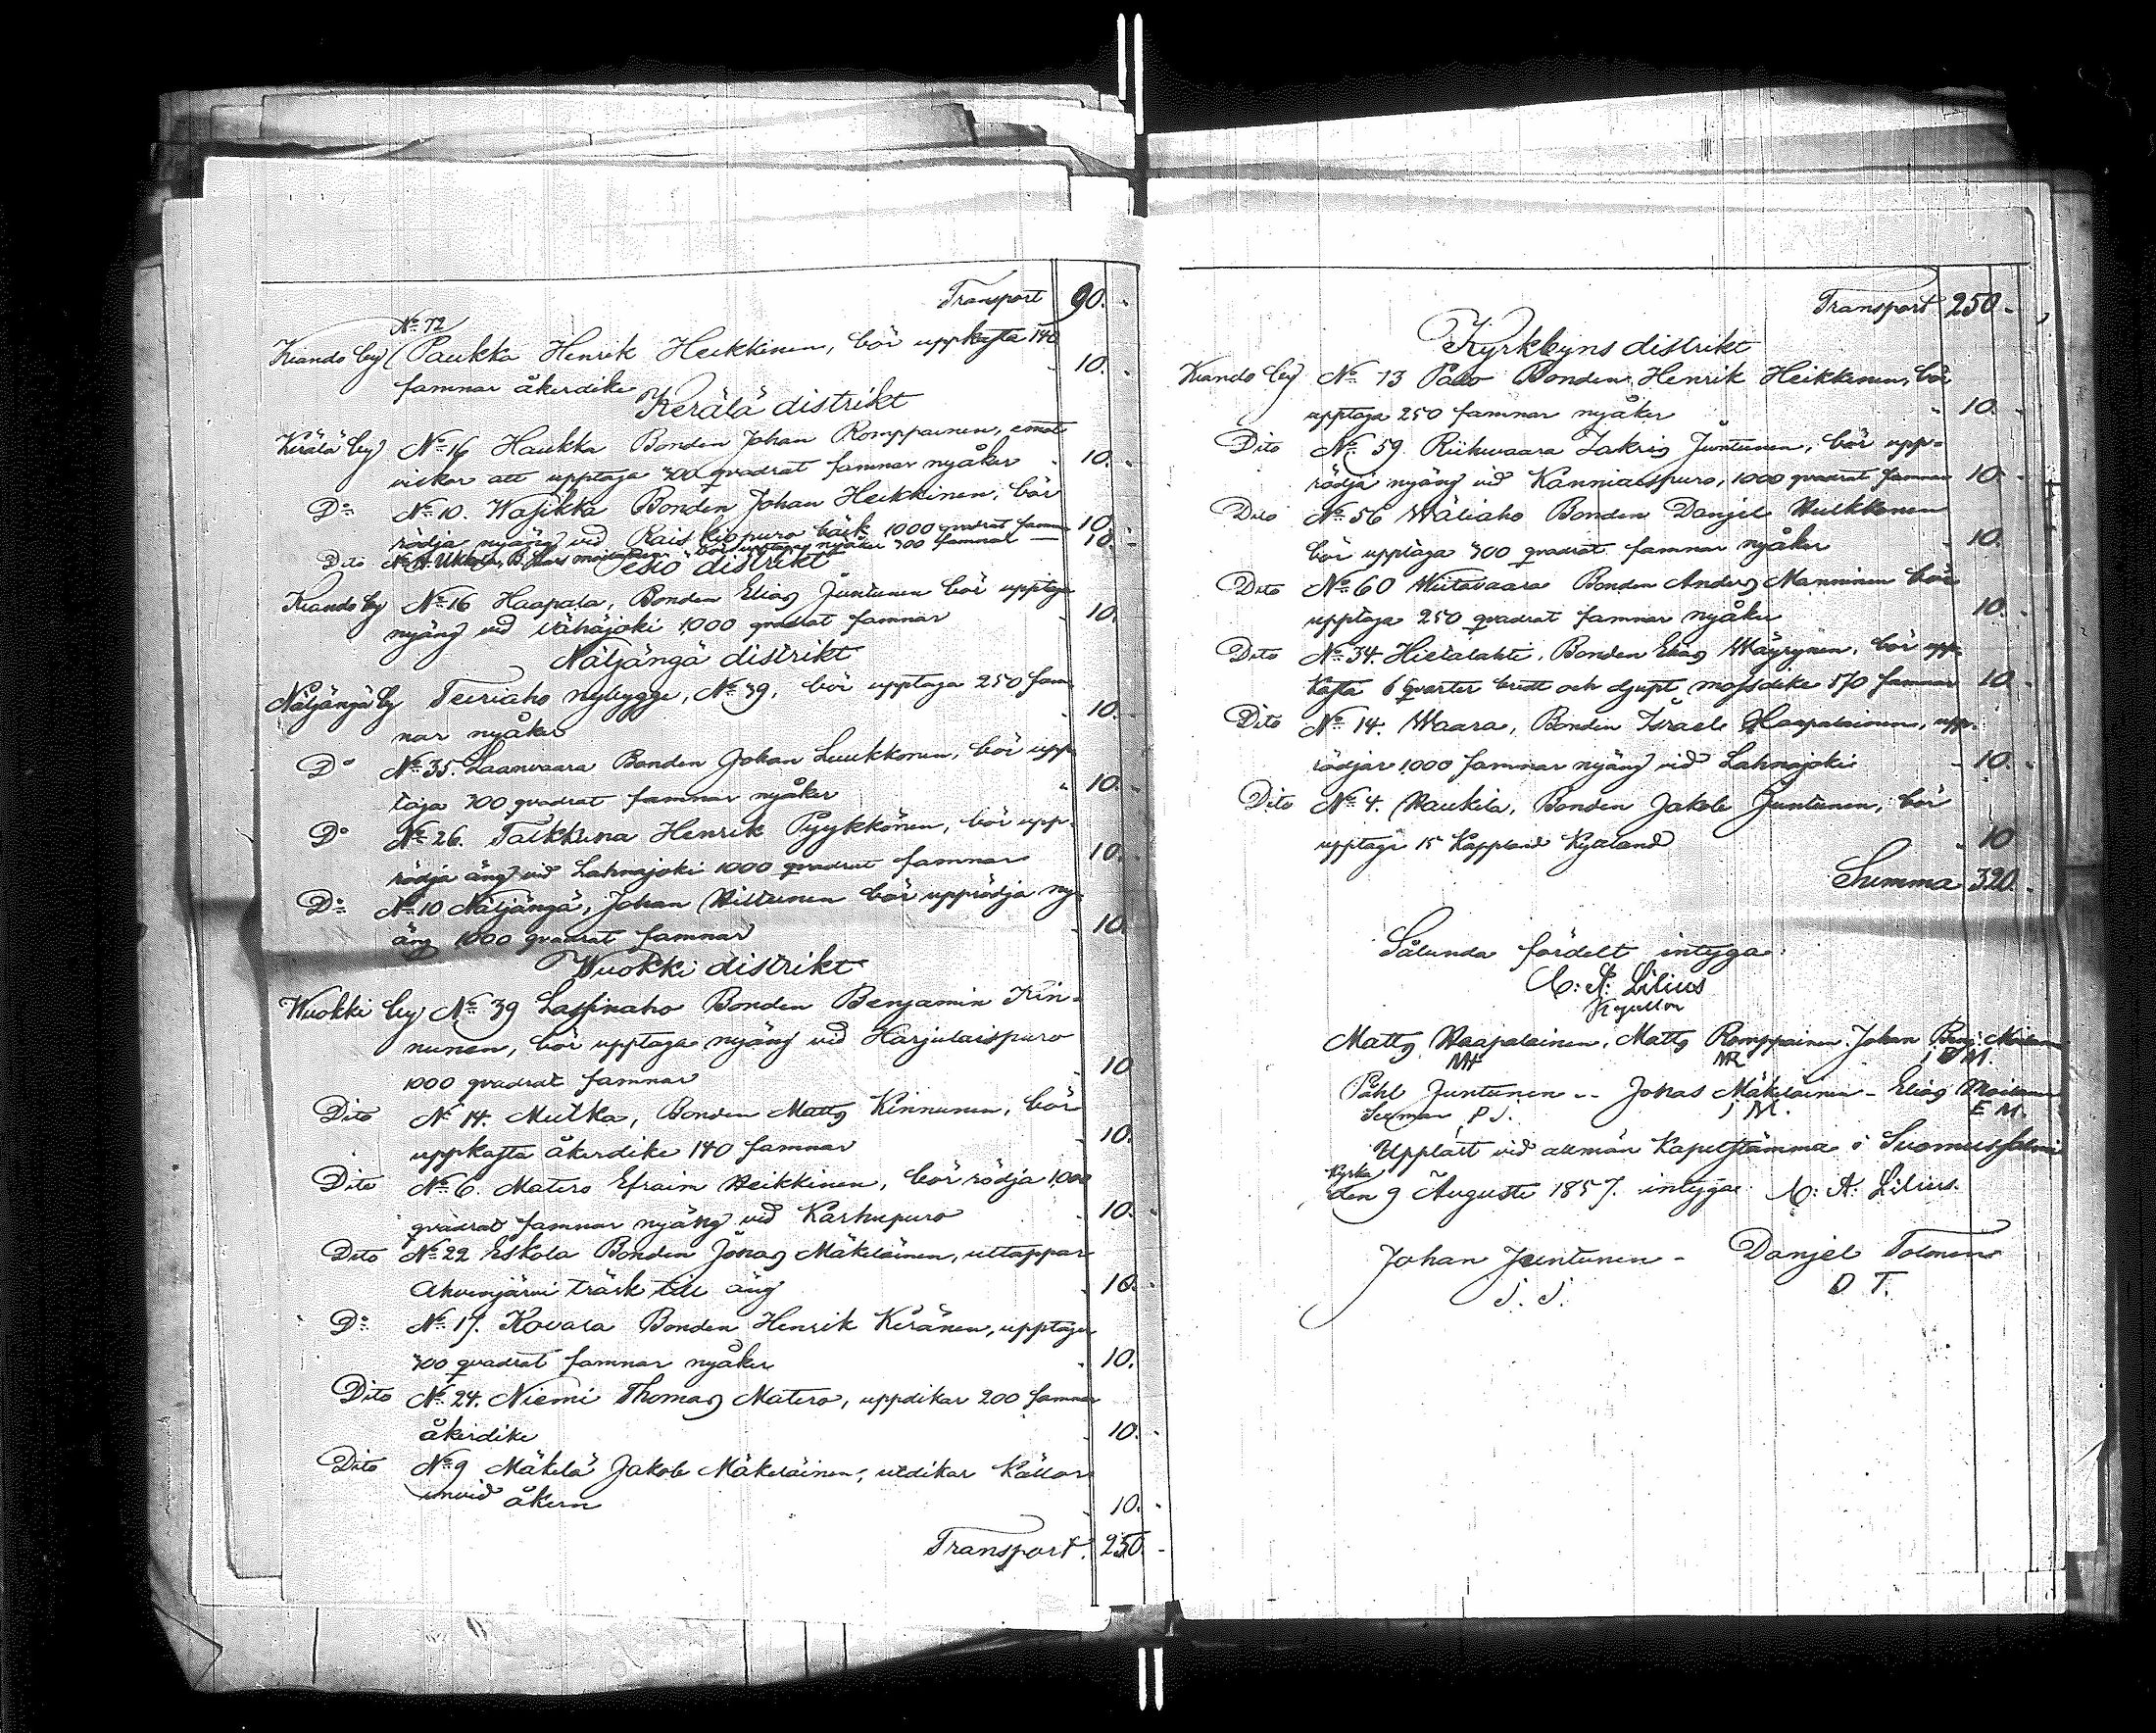 Transport 90.
No 72
Kiando by Paukka Henrik Heikkinen, bör uppkasta 140
famnar åkerdike 10.
Kerälä distrikt
Kerälä by No 16 Haukka Bonden Johan Romppainen, emot
att upptaga 300 qvadrat famnar nyåker 10.
Do No 10. Wasikka Bonden Johan Heikkinen, bör
rödja nyäng vid bäck 1000 qvadrat famn 10.
Dito bör upptaga nyåker 300 famnar — 10.
Pesiö distrikt
Kiando by No 16 Haapala, Bonden Elias Juntunen bör upptaga
nyäng vid Vähäjoki 1000 qvadrat famnar 10.
Näljängä distrikt
Näljängä by Teeriaho nybygge, No 39, bör upptaga 250 fam
nar nyåker 10.
Do No 35. Laanvaara Bonden Johan Luukkonen, bör upp
taga 300 qvadrat famnar nyåker 10.
Do No 26. Taikkina Henrik Pyykkönen, bör upp-
rödja äng vid Lahnajoki 1000 qvadrat famnar 10.
Do No 10 Näljängä, Johan Hiltunen bör upprödja ny-
äng 1000 qvadrat famnar 10.
Wuokki distrikt
Wuokki by No 39 Lassinaho Bonden Benjamin Kin-
nunen, bör upptaga nyäng vid Harjulaispuro
1000 qvadrat famnar 10
Dito No 14. Mutka, Bonden Matts Kinnunen, bör
uppkasta åkerdike 140 famnar 10.
Dito No 6. Matero Efraim Heikkinen, bör rödja 1000
qvadrat famnar nyäng vid Karhupuro 10.
Dito No 22 Eskola Bonden Jonas Mäkeläinen, uttappar
Ahvenjärvi träsk till äng 10.
Do No 17. Kovala Bonden Henrik Keränen, upptager
300 qvadrat famnar nyåker 10.
Dito No 24. Niemi Thomas Matero, uppdikar 200 famnar
åkerdike 10.
Dito No 9 Mäkelä Jakob Mäkeläinen, utdikar källor
invid åkern 10.
Transport. 250.
Transport 250.
Kyrkbyns distrikt
Kiando by No 13 Palo Bonden Henrik Heikkinen, bör
upptaga 250 famnar nyåker 10.
Dito No 59. Riihivaara Zakris Juntunen, bör upp-
rödja nyäng vid Kanniaispuro, 1000 qvadrat famnar 10.
Dito No 56 Wäliaho Bonden Danjel Hulkkonen
bör upptaga 300 qvadrat famnar nyåker 10.
Dito No 60 Wiitavaara Bonden Anders Manninen bör
upptaga 250 qvadrat famnar nyåker 10.
Dito No 34. Hietalahti, Bonden Elias Wäyrynen, bör upp-
kasta 6 qvarter bredt och djupt mossdike 170 famnar 10.
Dito No 14. Waara, Bonden Israel Haapalainen, upp-
rödjar 1000 famnar nyäng vid Lahnajoki 10.
Dito No 4. Haukila, Bonden Jakob Juntunen, bör
upptaga 15 Kappland Kyttland 10
Summa 320.
Sålunda fördelt intyga:
C: A: Lilius
Matts Haapalainen, Matts Romppainen, Johan Benj: Moilanen
MH MR J B M.
Påhl Juntunen -- Jonas Mäkeläinen - Elias Moilanen
Sexman P J. J M. E M.
Uppläst vid allmän Kapellstämma i Suomussalmi
kyrka
den 9 Augusti 1857. intygar C: A: Lilius.
Johan Juntunen - Danjel Tolonen
J. J. D T.